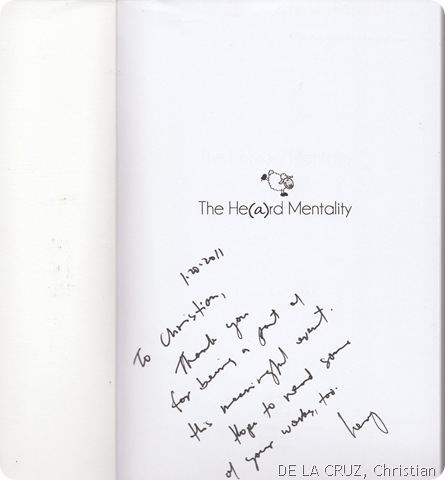 The He(a)rd Mentality
1.20.2011
To Christian,
Thank you
for being a part of
this meaningful event.
Hope to read some
of your works, too.
DE LA CRUZ, Christian